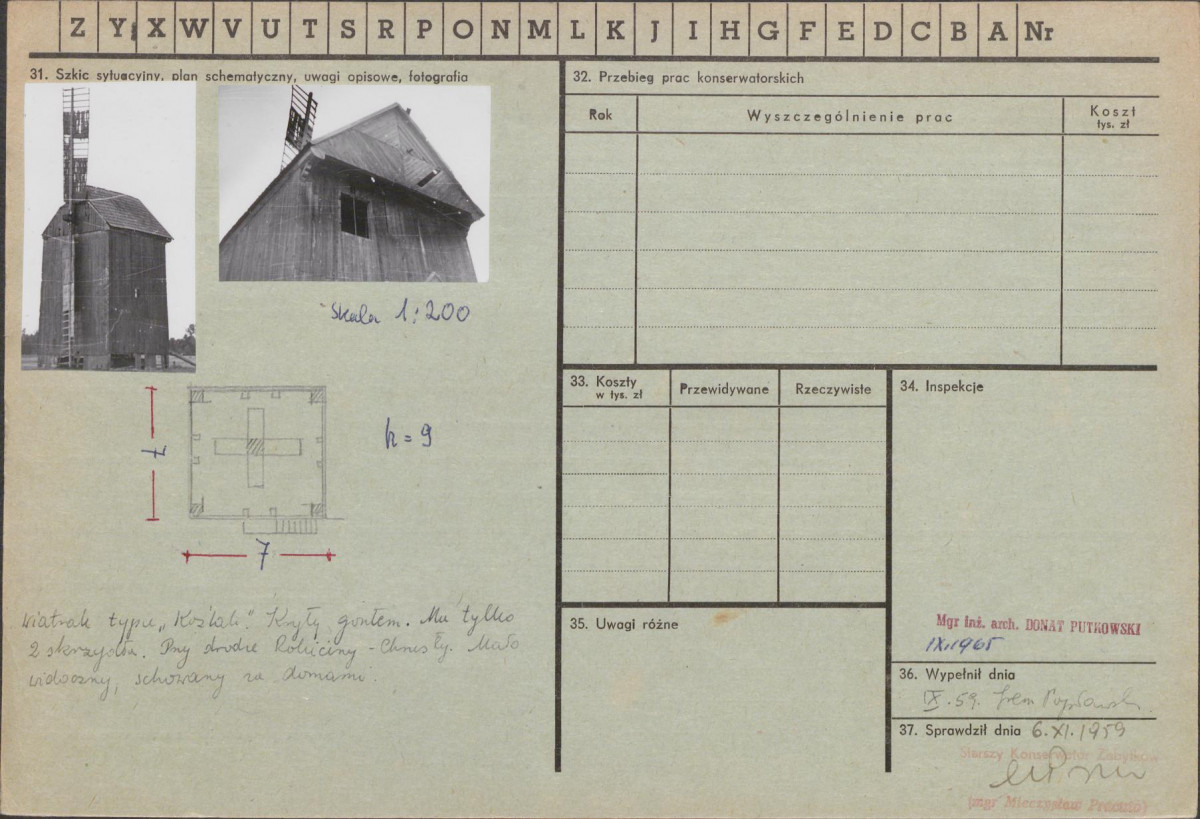 Z Y X W V U T S R P O N M L K J I H G F E D C B A Nr
31. Szkic sytuacyjny, plan schematyczny, uwagi opisowe, fotografia
Skala 1:200
7
h = 9
7
Wiatrak typu „Koźlak”. Kryty gontem. Ma tylko
2 skrzydła. Przy drodze - Chmosły. Mało
widoczny, schowany za domami.
32. Przebieg prac konserwatorskich
Rok
Wyszczególnienie prac
Koszt
tys. zł
33. Koszty
w tys. zł
Przewidywane
Rzeczywiste
34. Inspekcje
Mgr Inż. arch. DONAT PUTKOWSKI
IX.1965
35. Uwagi różne
36. Wypełnił dnia
IX. 59.
37. Sprawdził dnia 6.XI.1959
Starszy Konserwator Zabytków
(mgr Mieczysław